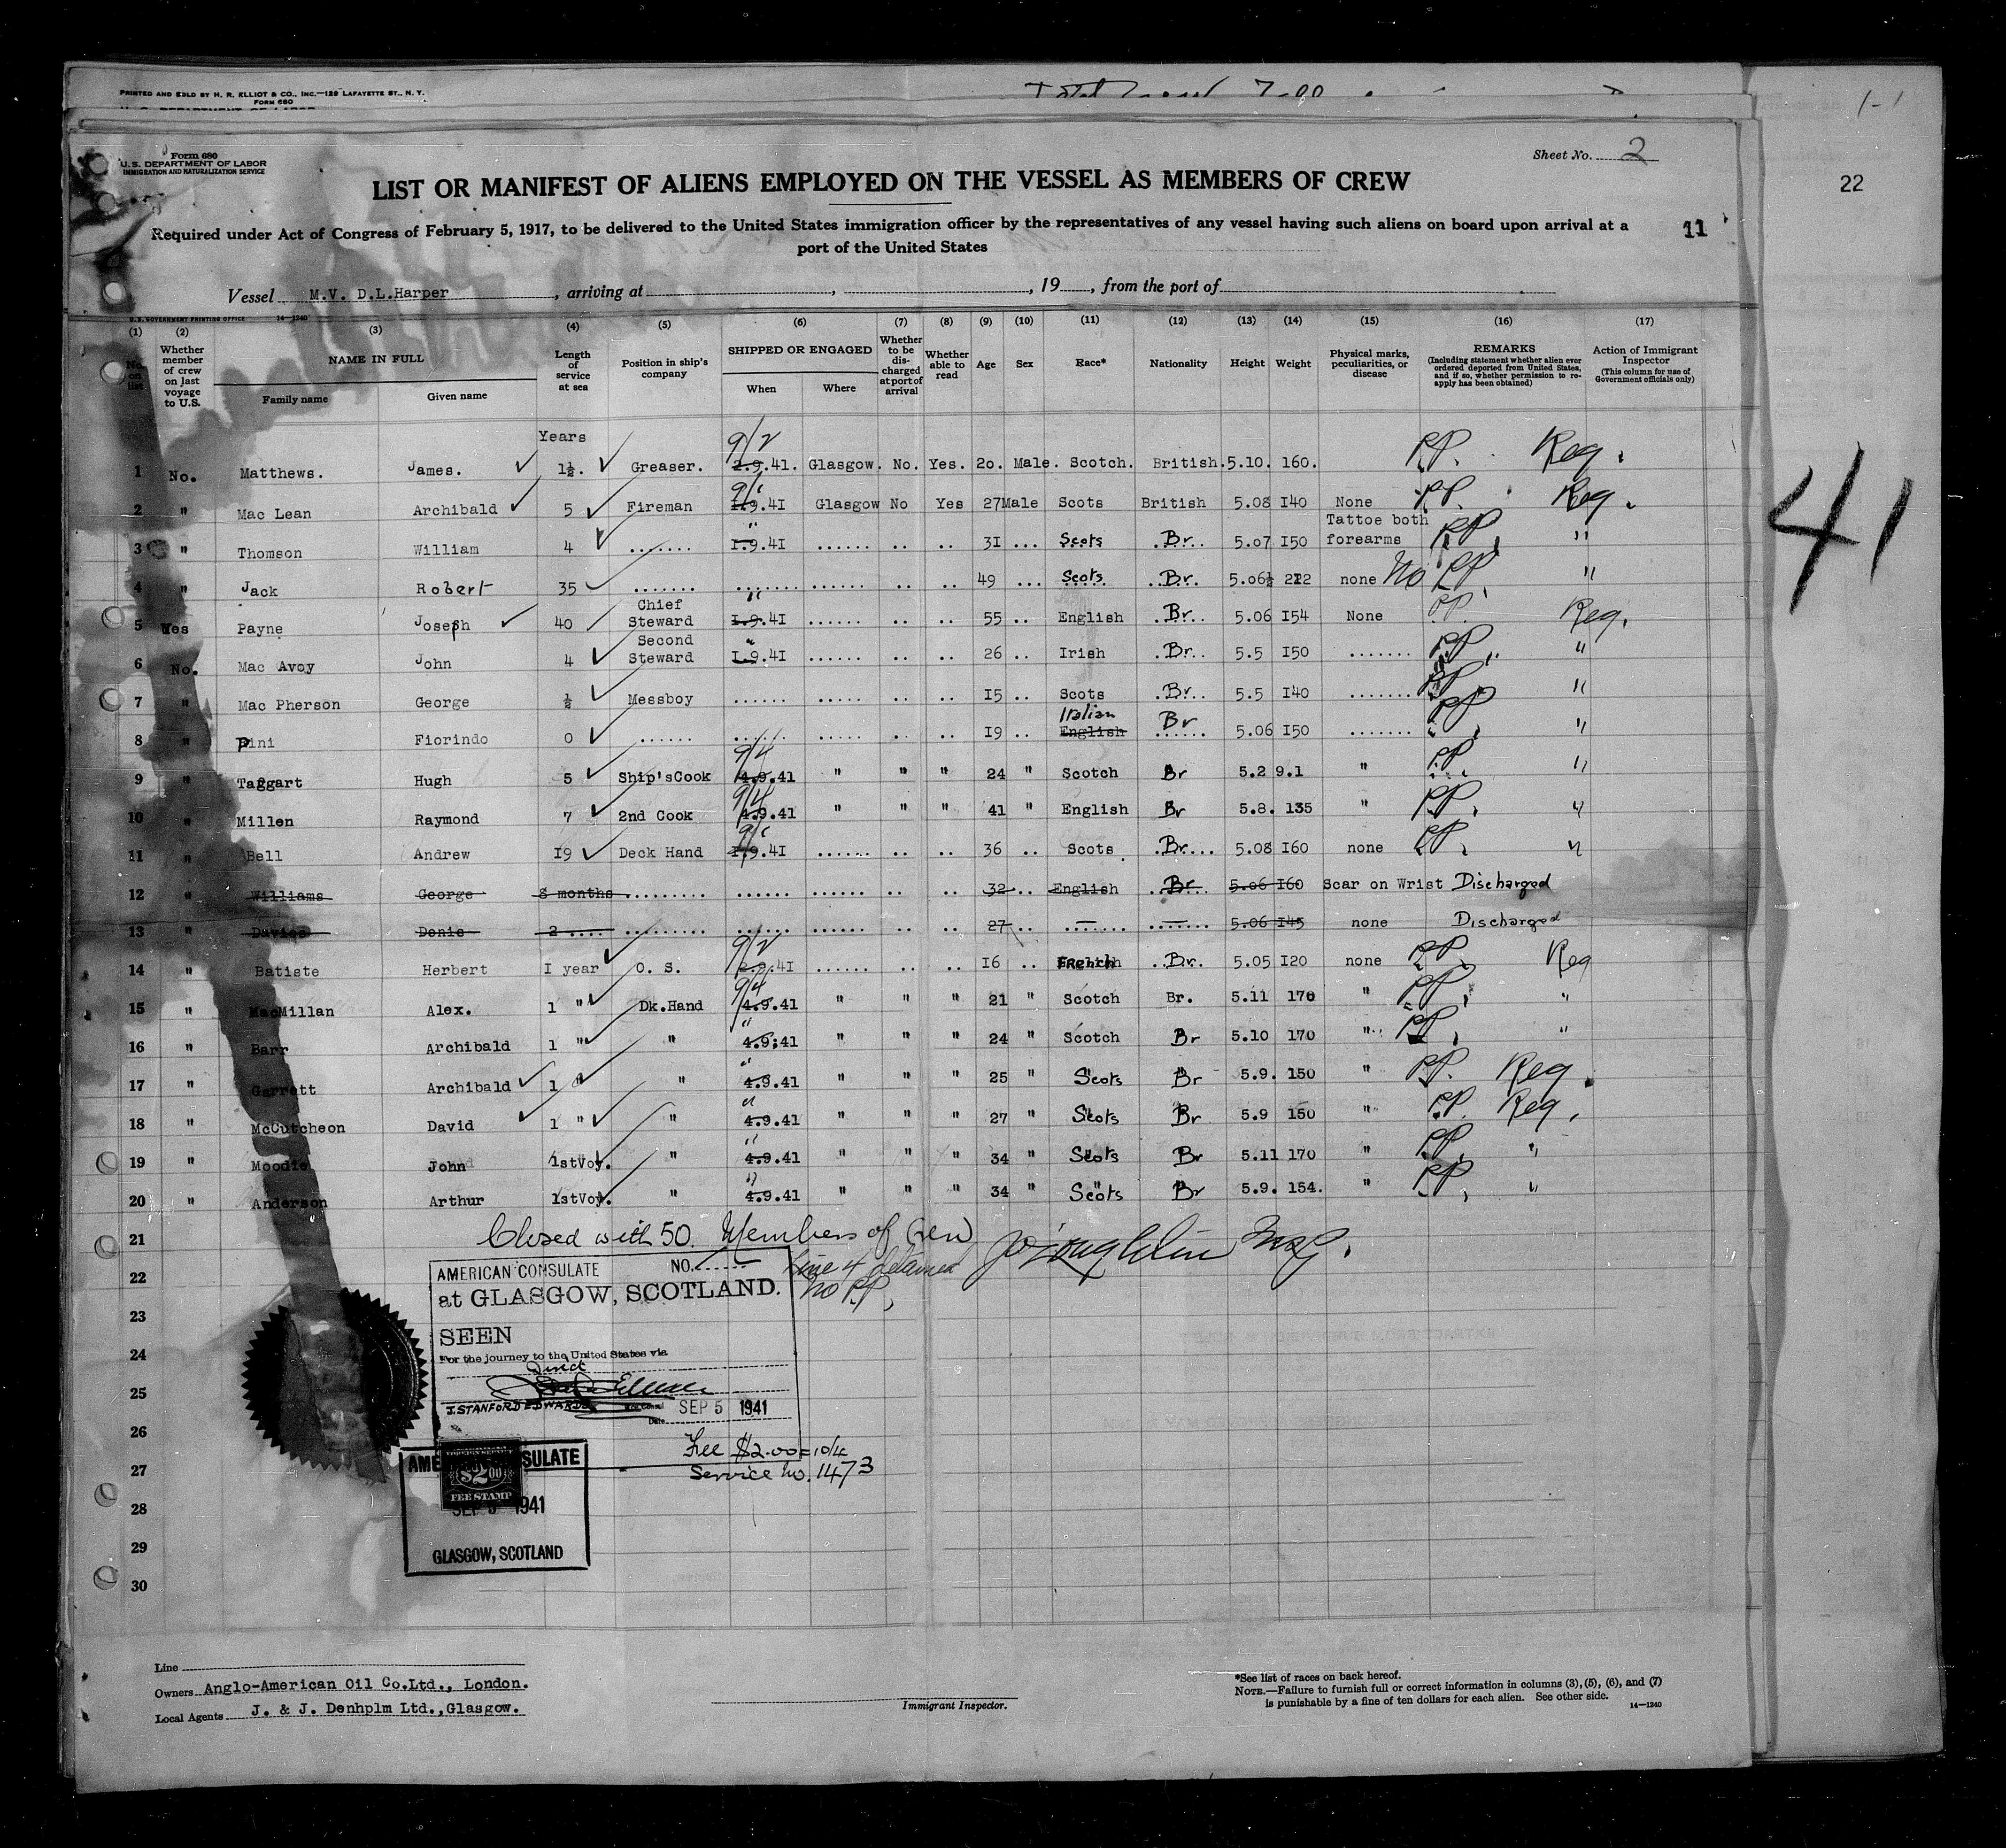 PRINTED AND SOLD BY H. R. ELLIOT & CO., INC.—129 LAFAYETTE ST., N. Y.
FORM 680
1-1
Form 680
U. S. DEPARTMENT OF LABOR
IMMIGRATION AND NATURALIZATION SERVICE
Sheet No. 2
22
LIST OR MANIFEST OF ALIENS EMPLOYED ON THE VESSEL AS MEMBERS OF CREW
Required under Act of Congress of February 5, 1917, to be delivered to the United States immigration officer by the representatives of any vessel having such aliens on board upon arrival at a
port of the United States
11
Vessel M.V. D.L.Harper, arriving at , , 19 , from the port of
U. S. GOVERNMENT PRINTING OFFICE 14—1240
(1) (2) (3) (4) (5) (6) (7) (8) (9) (10) (11) (12) (13) (14) (15) (16) (17)
No. on list
Whether member of crew on last voyage to U.S.
NAME IN FULL
Family name Given name
Length of service at sea
Position in ship's company
SHIPPED OR ENGAGED
When Where
Whether to be discharged at port of arrival
Whether able to read
Age
Sex
Race*
Nationality
Height
Weight
Physical marks, peculiarities, or disease
REMARKS
(Including statement whether alien ever ordered deported from United States, and if so, whether permission to reapply has been obtained)
Action of Immigrant Inspector
(This column for use of Government officials only)
Years
1 No. Matthews. James. 1½. Greaser. 9/2 2.9.41. Glasgow. No. Yes. 20. Male. Scotch. British. 5.10. 160. P.P. Reg.
2 " Mac Lean Archibald 5 Fireman 9/1 I.9.41 Glasgow No Yes 27 Male Scots British 5.08 I40 None P.P. Reg.
3 " Thomson William 4 ....... " I.9.41 ...... .. .. 3I ... Scots Br. 5.07 I50 Tattoe both forearms P.P. "
4 " Jack Robert 35 ....... ....... ...... .. .. 49 ... Scots Br. 5.06½ 212 none No P.P. "
5 Yes Payne Joseph 40 Chief Steward " I.9.41 ...... .. .. 55 .. English Br. 5.06 I54 None P.P. Reg.
6 No. Mac Avoy John 4 Second Steward " I.9.41 ...... .. .. 26 .. Irish Br. 5.5 I50 ....... P.P. "
7 " Mac Pherson George ½ Messboy ...... ...... .. .. I5 .. Scots Br. 5.5 I40 ....... P.P. "
8 " Pini Fiorindo 0 ...... ...... ...... .. .. I9 .. Italian English Br 5.06 I50 ....... P.P. "
9 " Taggart Hugh 5 Ship'sCook 9/4 4.9.41 " " " 24 " Scotch Br 5.2 9.1 " P.P. "
10 " Millen Raymond 7 2nd Cook 9/4 4.9.41 " " " 41 " English Br 5.8. 135 " P.P. "
11 " Bell Andrew I9 Deck Hand 9/1 I.9.41 ...... .. .. 36 .. Scots Br. 5.08 I60 none P.P. "
12 " Williams George 8 months ......... ...... ...... .. .. 32 .. English Br 5.06 I60 Scar on Wrist Discharged
13 " Davies Denis 2 .... ......... ...... ...... .. .. 27 .. ....... ....... 5.06 I45 none Discharged
14 " Batiste Herbert I year O. S. 9/2 2.9.41 ...... .. .. I6 .. FRench Br. 5.05 I20 none P.P. Reg
15 " MacMillan Alex. 1 " Dk.Hand 9/4 4.9.41 " " " 21 " Scotch Br. 5.11 170 " P.P. "
16 " Barr Archibald 1 " " " 4.9.41 " " " 24 " Scotch Br 5.10 170 " P.P. "
17 " Garrett Archibald 1 " " " 4.9.41 " " " 25 " Scots Br 5.9. 150 " P.P. Reg.
18 " McCutcheon David 1 " " " 4.9.41 " " " 27 " Scots Br 5.9 150 " P.P. Reg.
19 " Moodie John 1stVoy. " " 4.9.41 " " " 34 " Scots Br 5.11 170 " P.P. "
20 " Anderson Arthur 1stVoy. " " 4.9.41 " " " 34 " Scots Br 5.9. 154. " P.P. "
41
21 Closed with 50 Members of Crew
22 Line 4 detained
No P.P.
23
24
25
26
27
28
29
30
AMERICAN CONSULATE NO.
at GLASGOW, SCOTLAND.
SEEN
For the journey to the United States via
Direct
J. STANFORD EDWARDS Vice Consul
Date SEP 5 1941
Fee $2.00 = 10/4
Service No. 1473
AMERICAN CONSULATE
$2.00
FEE STAMP
SEP 5 1941
GLASGOW, SCOTLAND
Line
Owners Anglo-American Oil Co.Ltd., London.
Local Agents J. & J. Denhplm Ltd.,Glasgow.
Immigrant Inspector.
*See list of races on back hereof.
NOTE.—Failure to furnish full or correct information in columns (3), (5), (6), and (7)
is punishable by a fine of ten dollars for each alien. See other side. 14—1240